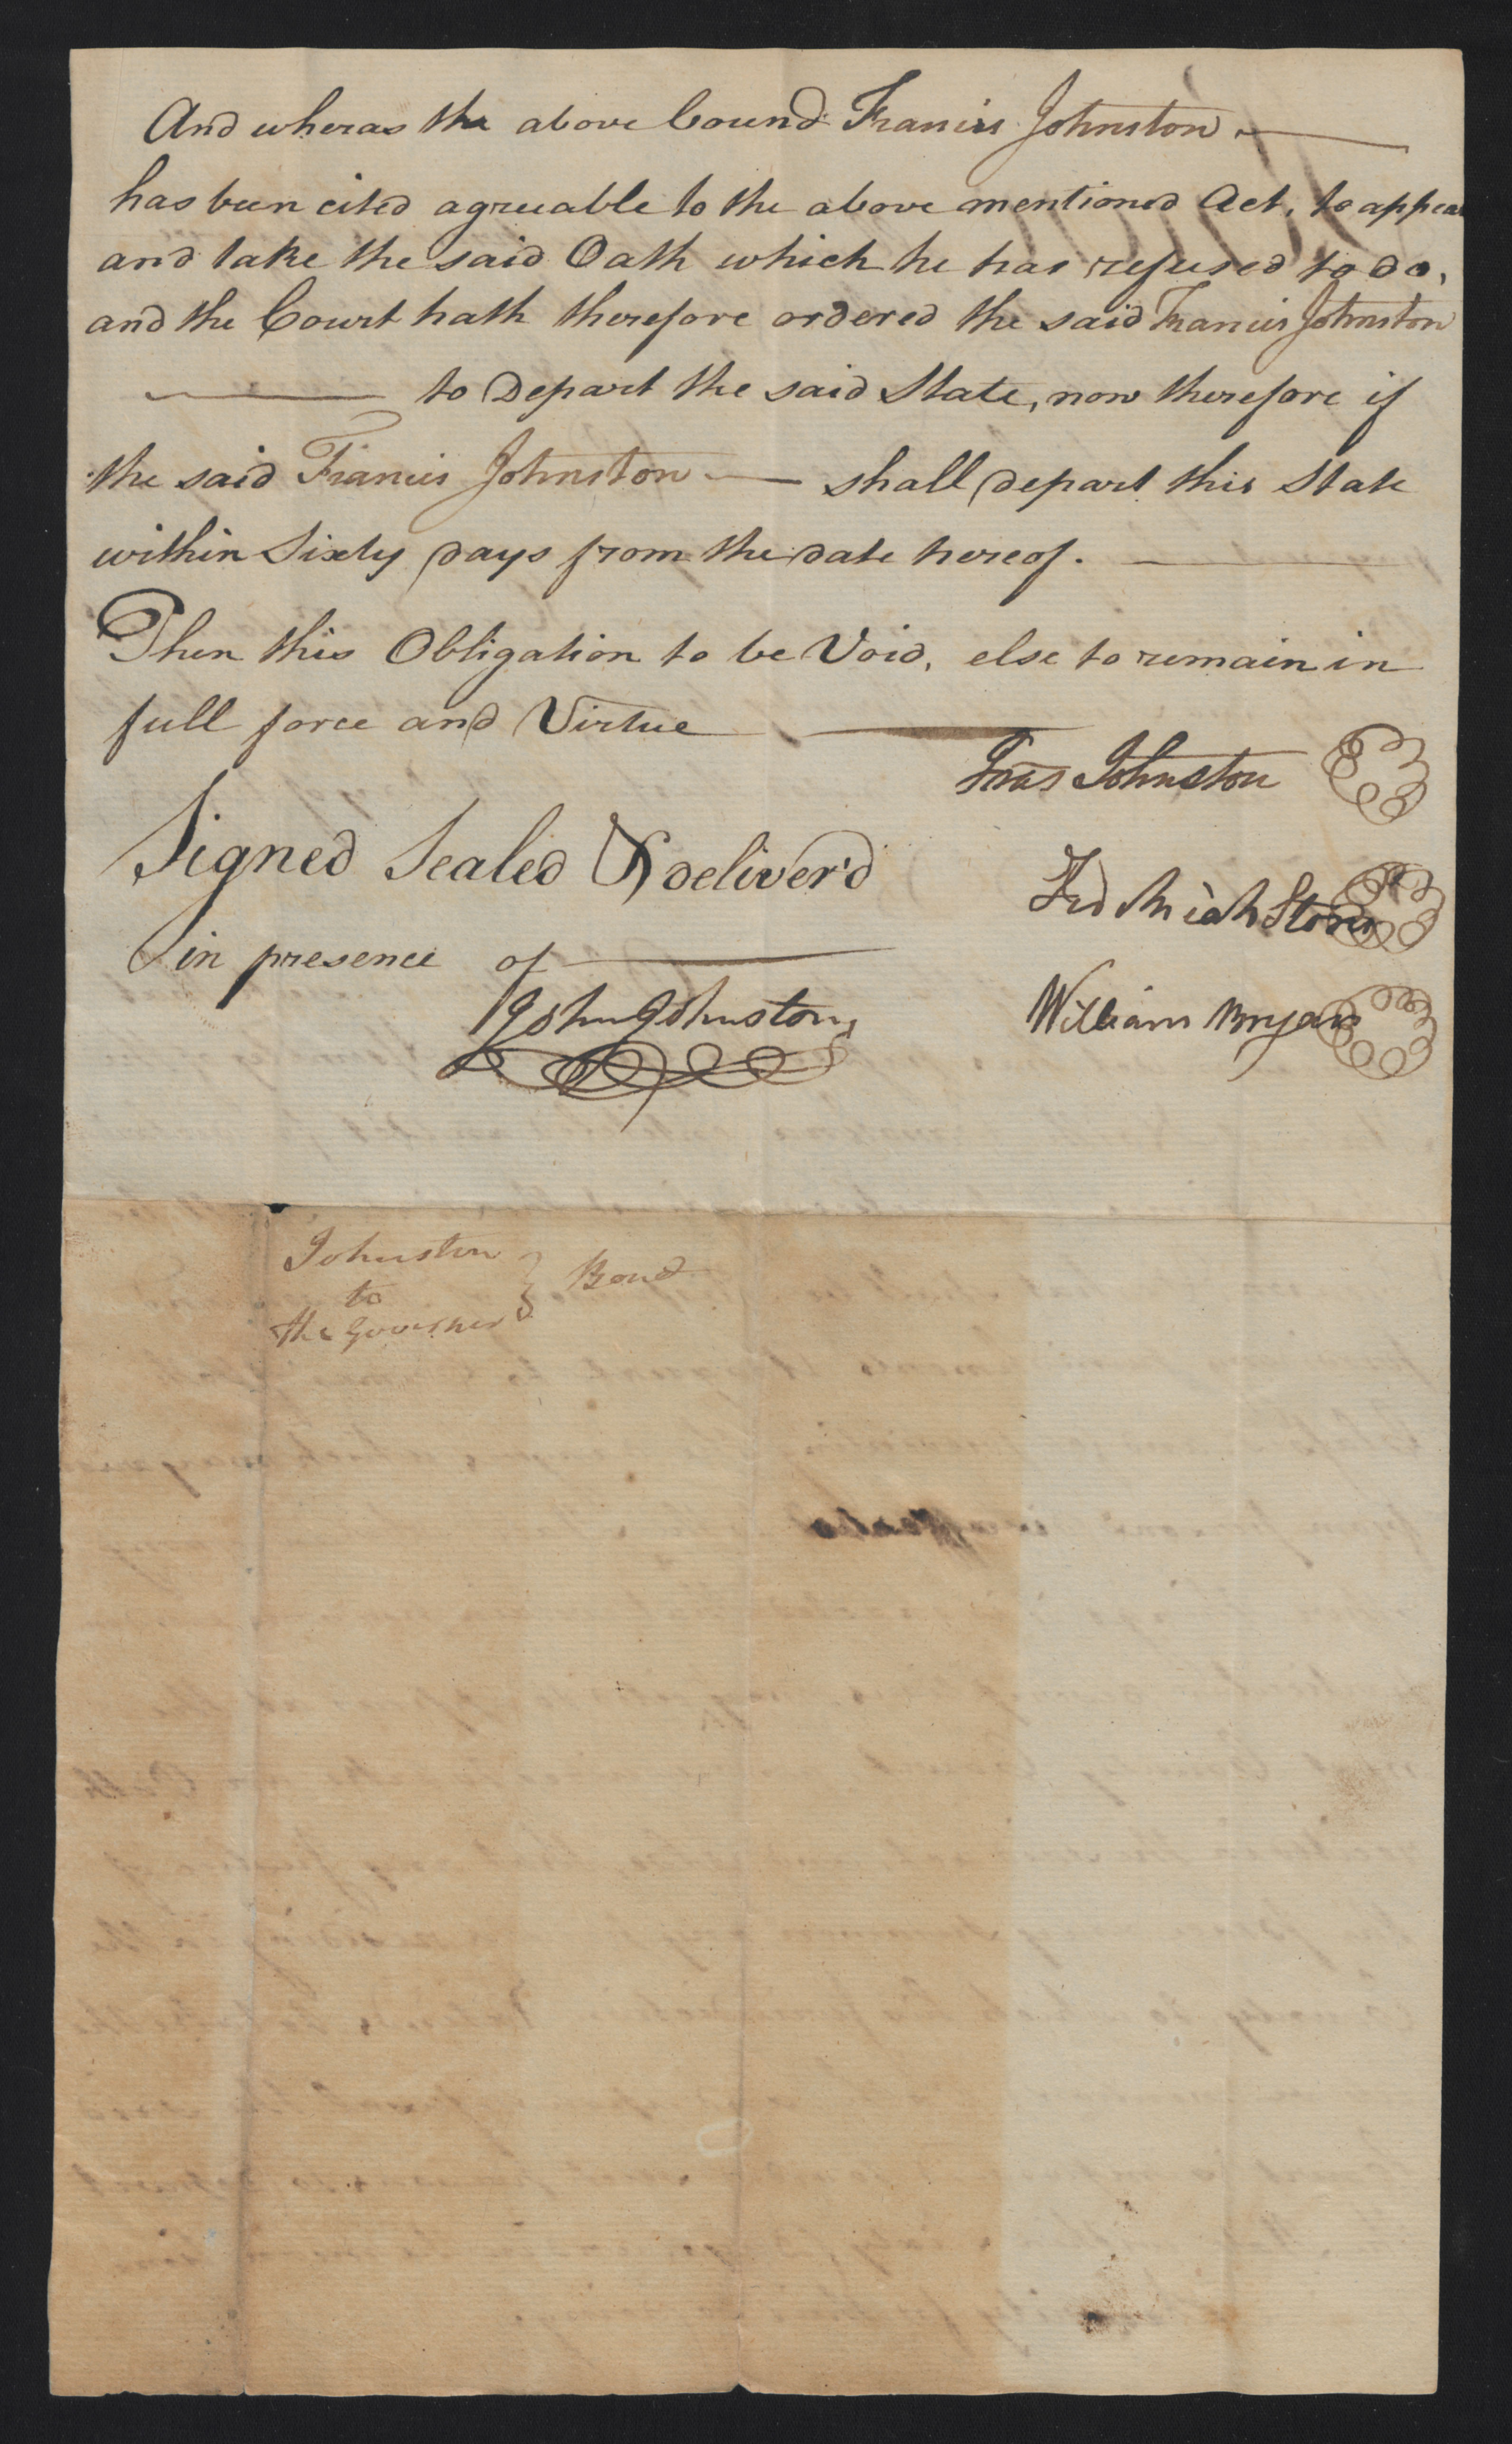 And wheras the above bound Francis Johnston
has been cited agreeable to the above mentioned Act, to appear
and take the said Oath which he has refused to do,
and the Court hath therefore ordered the said Francis Johnston
to Depart the said State, now therefore if
the said Francis Johnston shall depart this State
within Sixty days from the date hereof.
Then this Obligation to be Void, else to remain in
full force and Virtue
Fras Johnston
Signed Sealed & deliver'd
in presence of
John Johnston
William Bryan
Johnston
to
the Governer
Bond